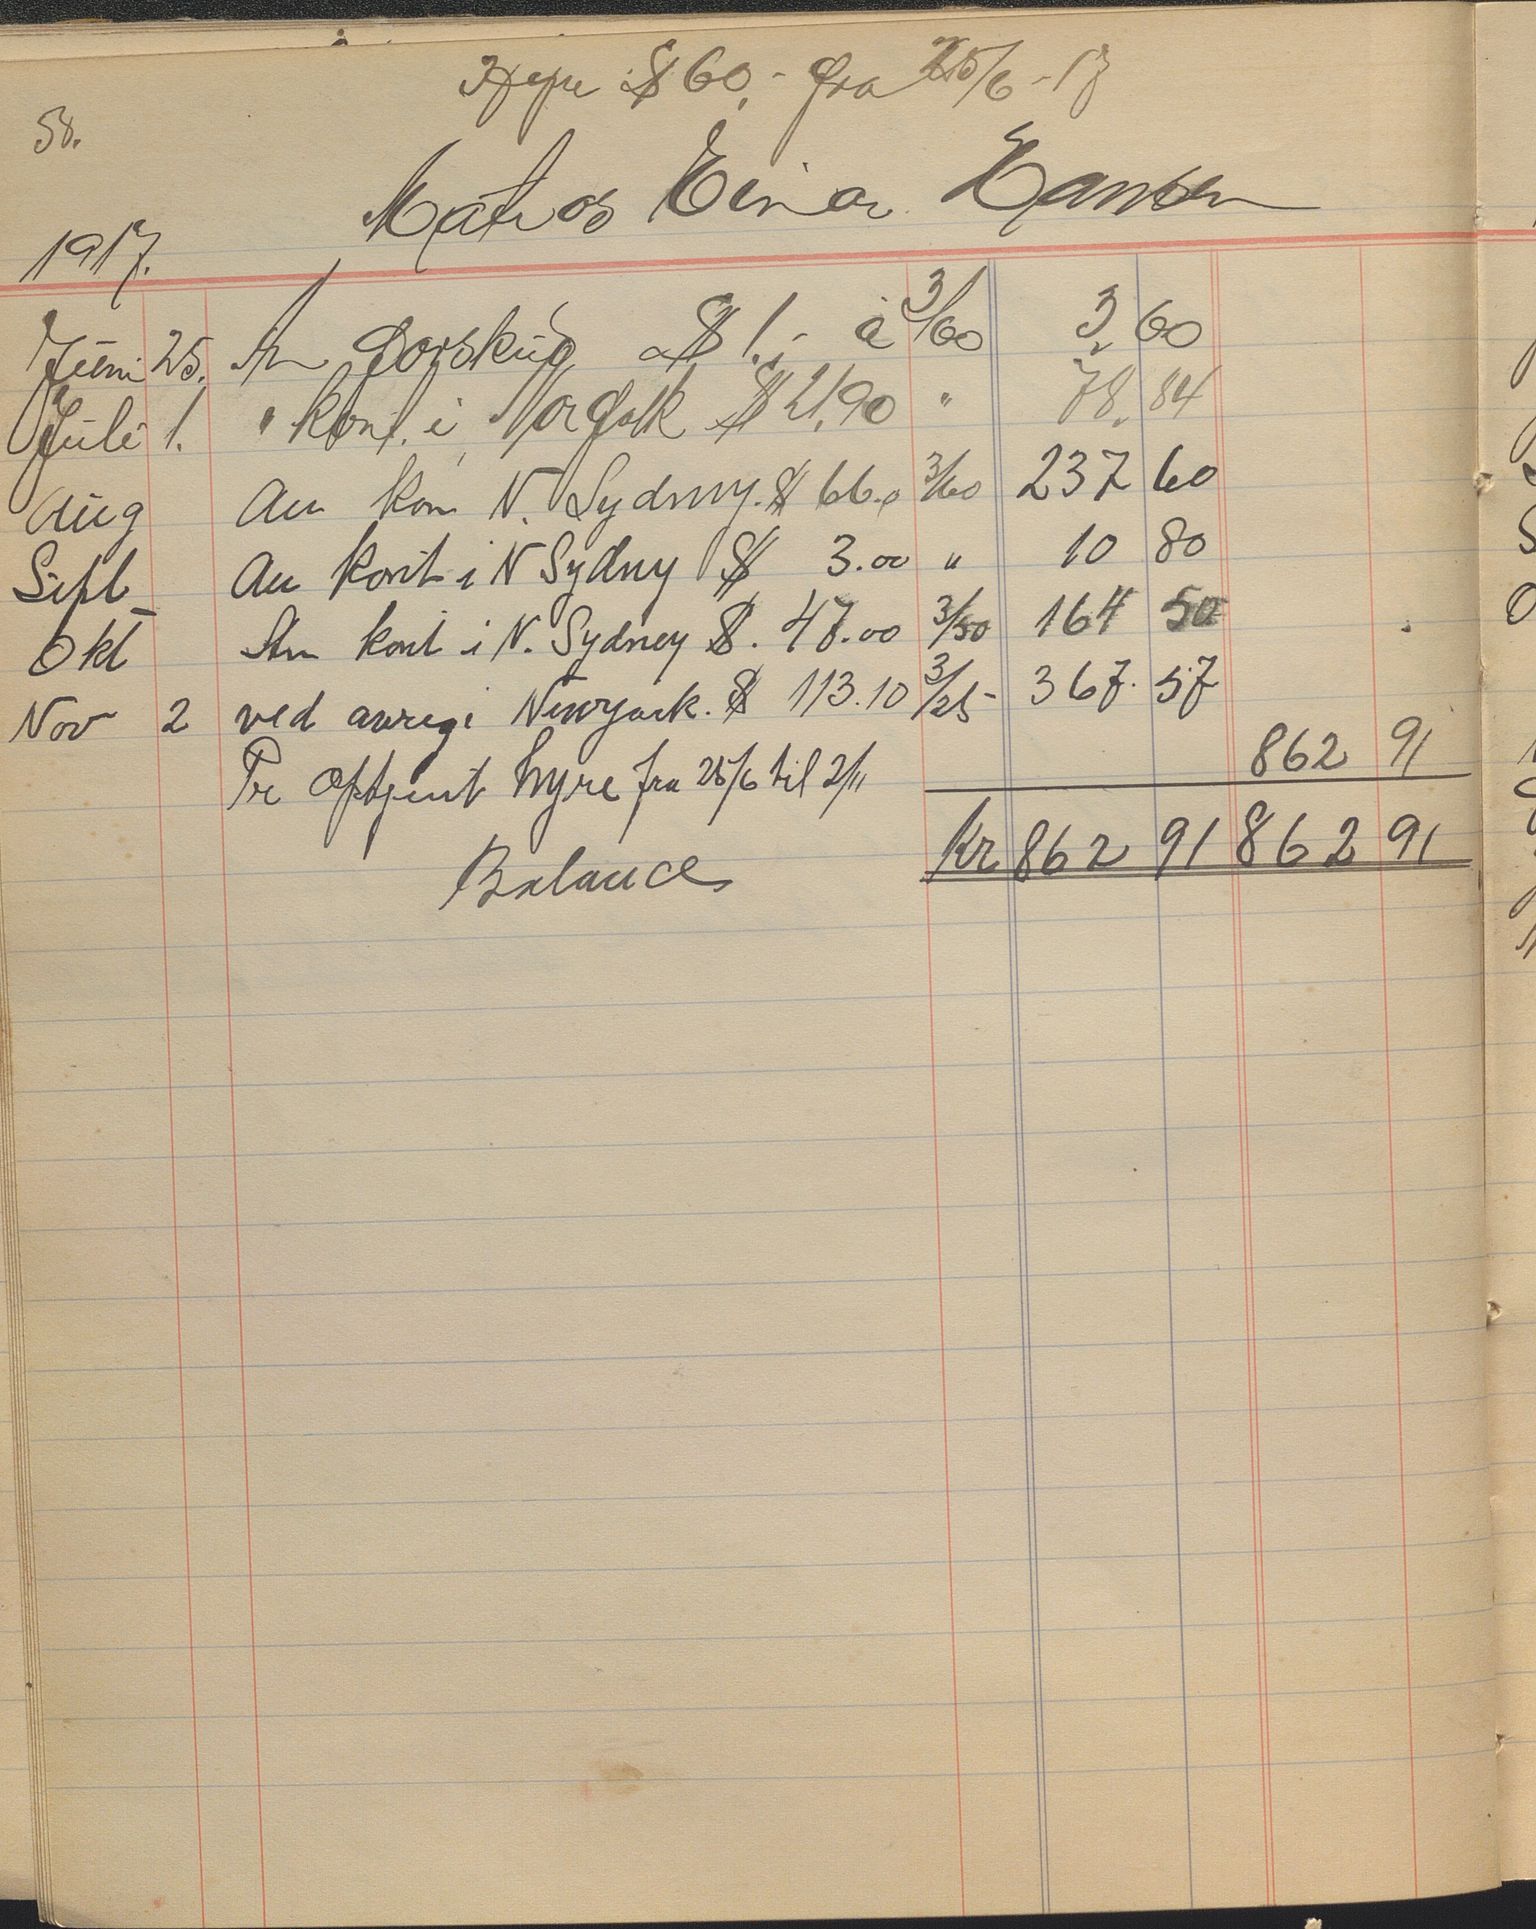 Hyre $ 60,- fra 25/6 - 17
58.
Matros Einar Hansen
1917.
Juni 25. An forskud $ 1.- à 3/60 3 60
Juli 1. " kont. i Norfolk $ 21,90 " 78. 84
Aug An kon N. Sydney. $ 66.0 3/60 237 60
Sept An kont i N Sydny $ 3.00 " 10 80
Okt An kont i N. Sydney $. 47.00 3/50 164 50
Nov 2 ved avreg i Newyork. $ 113.10 3/25 367. 57
Pr optjent hyre fra 25/6 til 2/11 862 91
Balance Kr 862 91 862 91